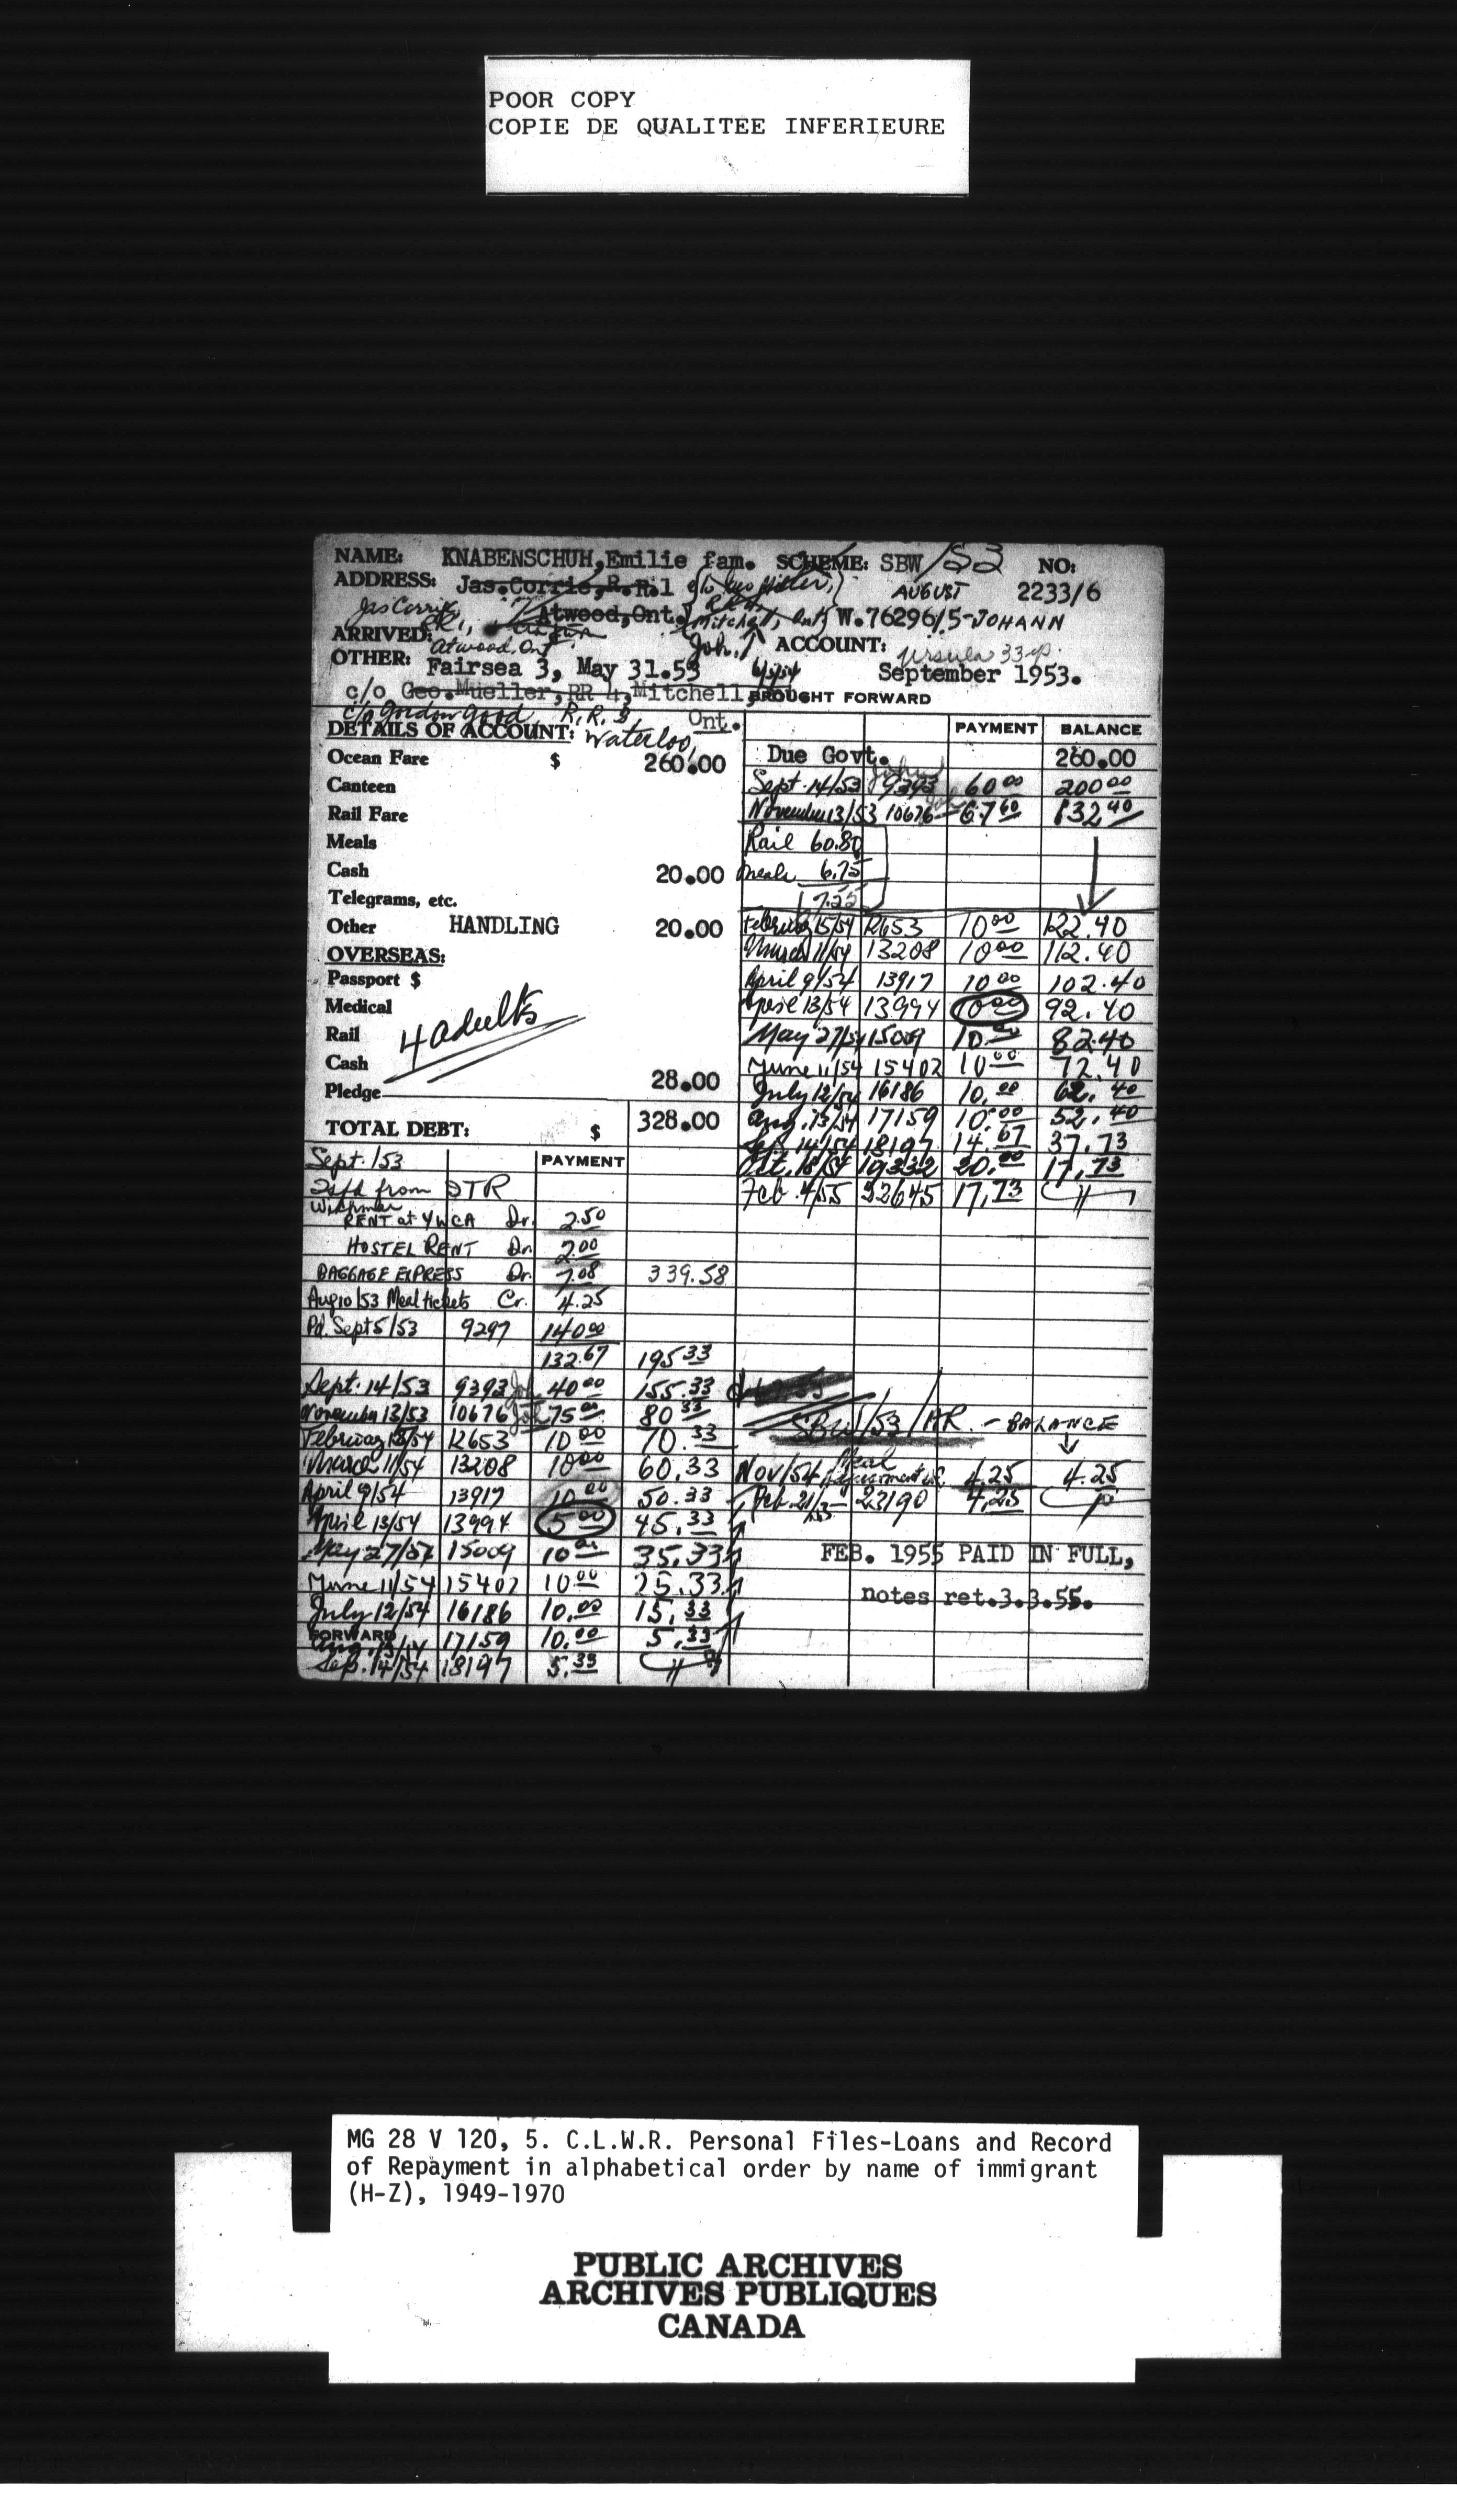 POOR COPY
COPIE DE QUALITEE INFERIEURE
NAME: KNABENSCHUH,Emilie fam. SCHEME: SBW/53 NO:
ADDRESS: Jas.Corrie,R.R.1 c/o AUGUST 2233/6
Jas Corrie, Atwood,Ont. Mitchell, Ont W.76296/5-JOHANN
RR1,
ARRIVED: Atwood, Ont. Joh. ACCOUNT: Ursula 33
OTHER: Fairsea 3, May 31.53 September 1953.
c/o Geo.Mueller,RR 4,Mitchell, BROUGHT FORWARD
c/o Gordon Good, R.R. 3, Ont.
DETAILS OF ACCOUNT: Waterloo,
PAYMENT BALANCE
Ocean Fare $ 260.00
Canteen
Rail Fare
Meals
Cash 20.00
Telegrams, etc.
Other HANDLING 20.00
OVERSEAS:
Passport $
Medical
Rail 4 adults
Cash
28.00
Pledge
TOTAL DEBT: $ 328.00
Sept./53 PAYMENT
Tsfd from DTR
RENT at YWCA Dr. 2.50
HOSTEL RENT Dr. 2.00
BAGGAGE EXPRESS Dr. 7.08 339.58
Aug 10/53 Meal tickets Cr. 4.25
Pd. Sept 5/53 9297 140.00
132.67 195.33
Sept. 14/53 9393 Joh. 40.00 155.33
November 13/53 10676 Joh 75.00 80.33
February 15/54 12653 10.00 70.33
March 11/54 13208 10.00 60.33
April 9/54 13917 10.00 50.33
April 13/54 13994 5.00 45.33
May 27/54 15009 10.00 35.33
June 11/54 15402 10.00 25.33
July 12/54 16186 10.00 15.33
FORWARD
Aug. 13/54 17159 10.00 5.33
Sep. 14/54 18197 5.33
Due Govt. 260.00
Sept. 14/53 9393 60.00 200.00
November 13/53 10676 67.60 132.40
Rail 60.80
Meals 6.75
February 15/54 12653 10.00 122.40
March 11/54 13208 10.00 112.40
April 9/54 13917 10.00 102.40
April 13/54 13994 10.00 92.40
May 27/54 15009 10.00 82.40
June 11/54 15402 10.00 72.40
July 12/54 16186 10.00 62.40
Aug. 13/54 17159 10.00 52.40
Sep. 14/54 18197 14.67 37.73
Oct. 18/54 19332 20.00 17.73
Feb. 4/55 22645 17.73
SBW/53/AR. - BALANCE
Nov/54 Meal 4.25 4.25
Feb. 21/55 23190 4.25
FEB. 1955 PAID IN FULL,
notes ret.3.3.55.
MG 28 V 120, 5. C.L.W.R. Personal Files-Loans and Record
of Repayment in alphabetical order by name of immigrant
(H-Z), 1949-1970
PUBLIC ARCHIVES
ARCHIVES PUBLIQUES
CANADA